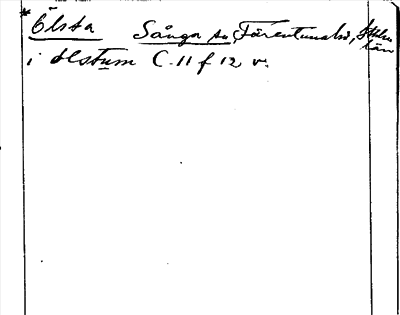 *Ölsta Sånga sn, Färentuna hd, Sthlms län
i ølstum C 11 f 12 v.